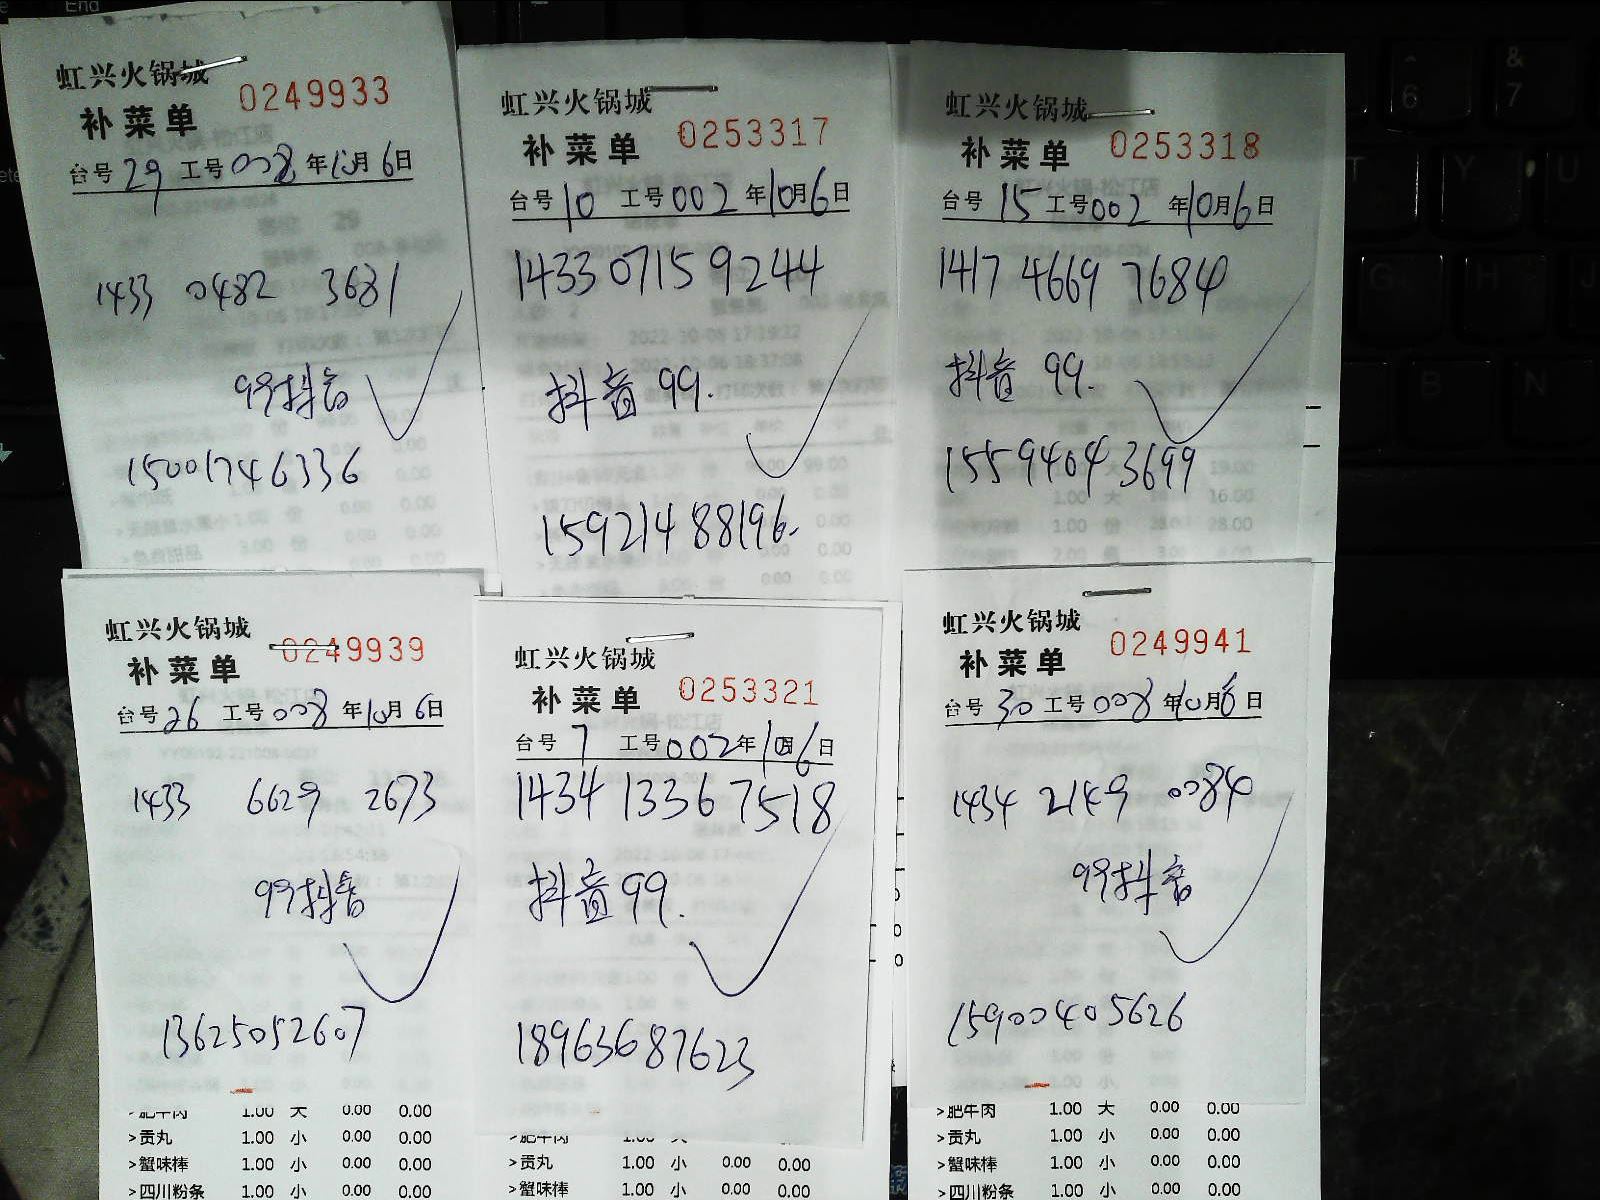 End
虹兴火锅城
0249933
补菜单
台号 29 工号 008 年 10月 6日
1433 0482 3681
99抖音
15001746336
虹兴火锅城
0253317
补菜单
台号 10 工号 002 年 10月 6日
1433 0715 9244
2022-10-06 17:19:32
2022-10-06 18:37:08
抖音 99.
15921488196.
虹兴火锅城
0253318
补菜单
台号 15 工号 002 年 10月 6日
1417 4669 7684
抖音 99.
15594043699
虹兴火锅城
0249939
补菜单
台号 26 工号 008 年 10月 6日
1433 6629 2673
99抖音
13625052607
>肥牛肉 1.00 大 0.00 0.00
>贡丸 1.00 小 0.00 0.00
>蟹味棒 1.00 小 0.00 0.00
>四川粉条 1.00 小 0.00 0.00
虹兴火锅城
0253321
补菜单
台号 7 工号 002 年 10月 6日
1434 1336 7518
抖音 99.
18963687623
>肥牛肉 1.00 大
>贡丸 1.00 小 0.00 0.00
>蟹味棒 1.00 小 0.00 0.00
虹兴火锅城
0249941
补菜单
台号 30 工号 008 年 10月 6日
1434 2149 0084
99抖音
15900405626
>肥牛肉 1.00 大 0.00 0.00
>贡丸 1.00 小 0.00 0.00
>蟹味棒 1.00 小 0.00 0.00
>四川粉条 1.00 小 0.00 0.00
^
6
&
7
T
Y
U
G
H
J
B
N